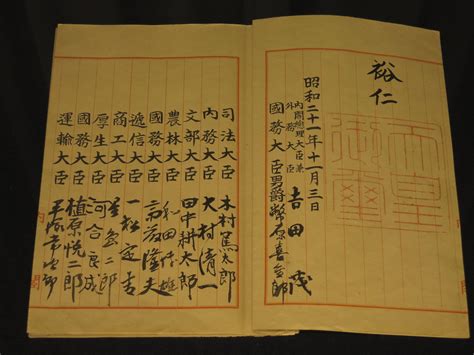 裕仁
天皇
御璽
昭和二十一年十一月三日
內閣總理大臣兼
外務大臣
吉田茂
國務大臣男爵幣原喜重郎
司法大臣 木村篤太郎
內務大臣 大村清一
文部大臣 田中耕太郎
農林大臣 和田博雄
國務大臣 斎藤隆夫
遞信大臣 一松定吉
商工大臣 星島二郎
厚生大臣 河合良成
國務大臣 植原悦二郎
運輸大臣 平塚常次郎